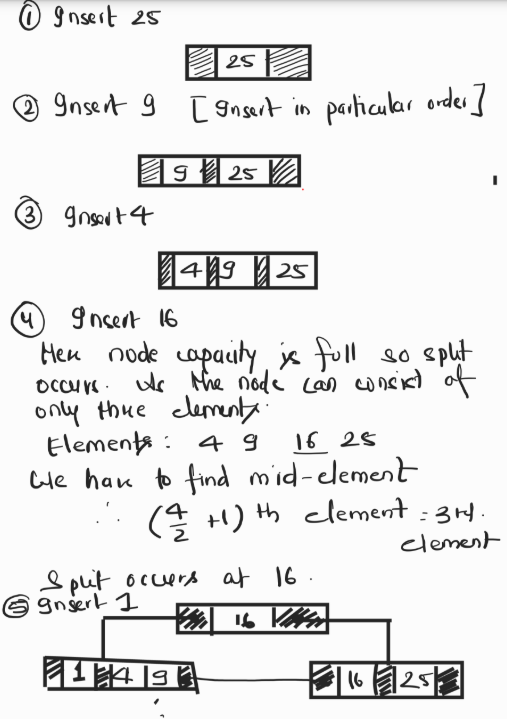 ① Insert 25
25
② Insert 9 [Insert in particular order]
9 25
③ Insert 4
4 9 25
④ Insert 16
Here node capacity is full so split
occurs. As the node can consist of
only three elements.
Elements: 4 9 16 25
We have to find mid-element
∴ (4/2 +1) th element = 3rd.
element
Split occurs at 16.
⑤ Insert 1
16
1 4 9 16 25